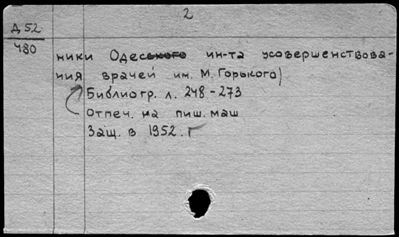 2
Д 52
480
ники Одесского ин-та усовершенствова-
ния врачей им. М. Горького)
Библиогр. л. 248-273
Отпеч. на пиш. маш
Защ. в 1952. г